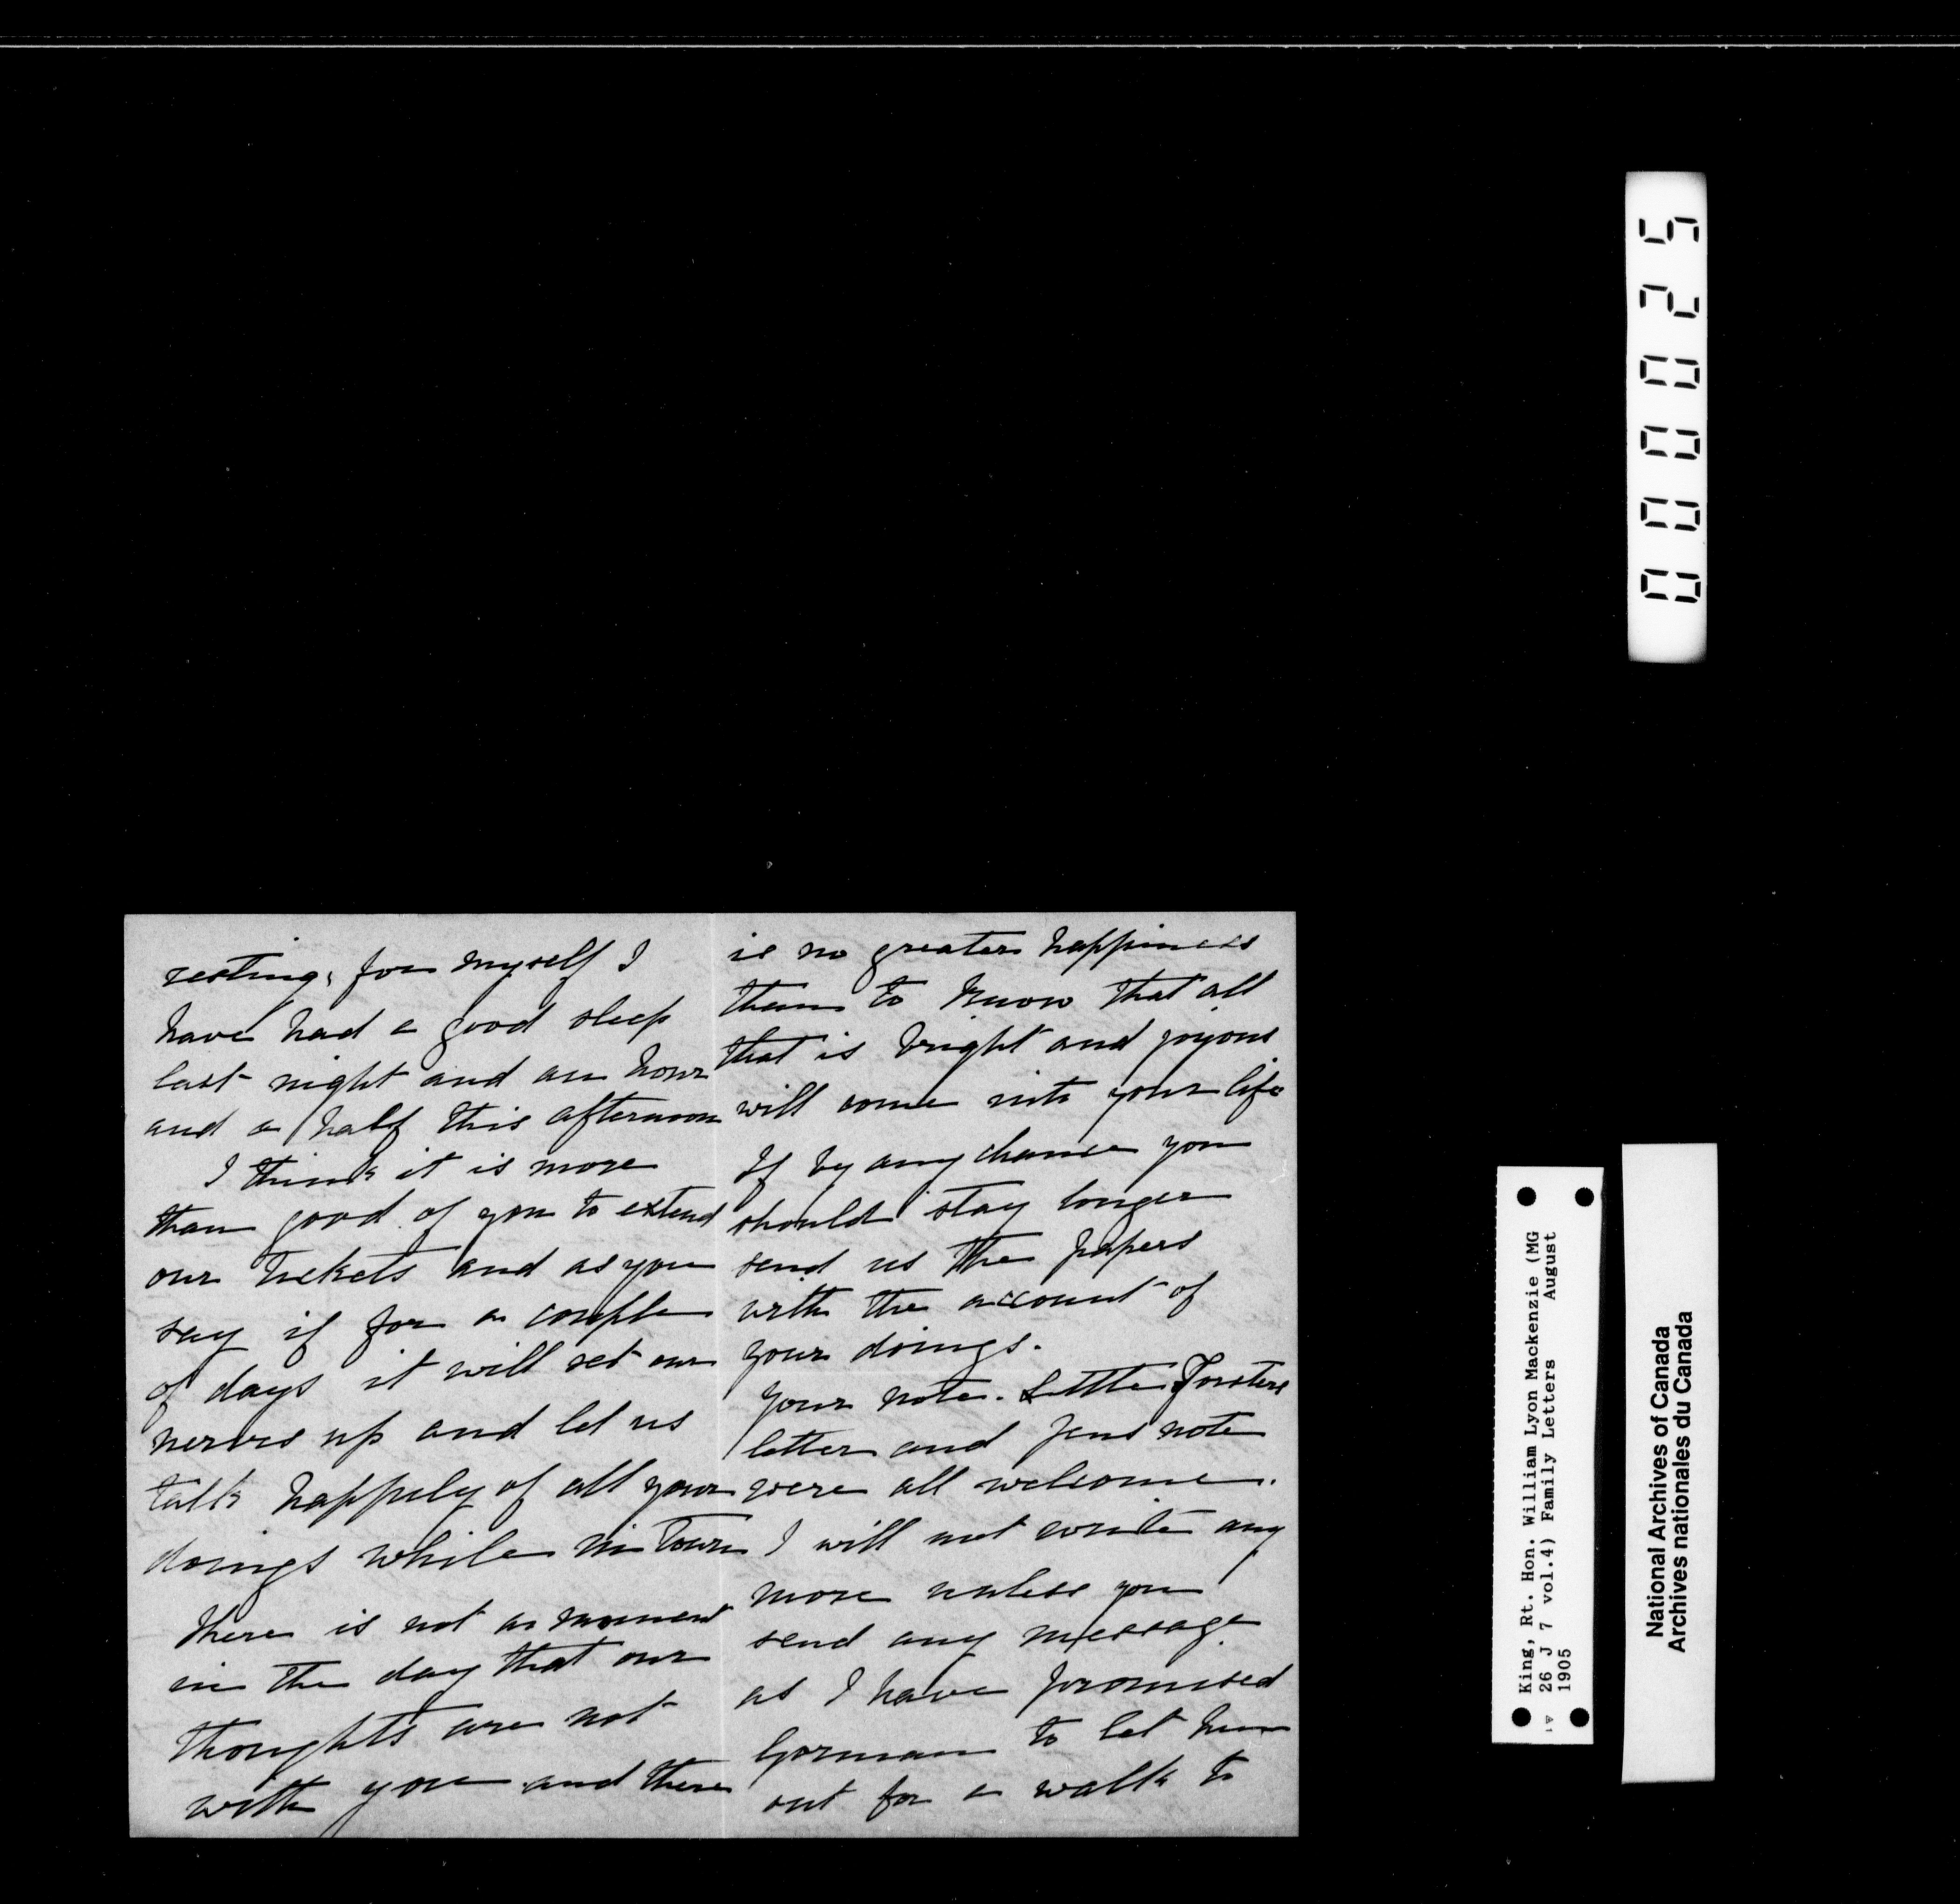 resting, for myself I
have had a good sleep
last night and an hour
and a half this afternoon
I think it is more
than good of you to extend
our tickets and as you
say if for a couple
of days it will set our
nerves up and let us
talk happily of all your
doings while in Town
There is not a moment
in the day that our
thoughts are not
with you and there
is no greater happiness
than to know that all
that is bright and joyous
will come into your life
If by any chance you
should stay longer
send us the papers
with the account of
your doings.
Your note. Little Forsters
letter and Jens note
were all welcome.
I will not write any
more unless you
send any message
as I have promised
to let him
out for a walk to
000025
King, Rt. Hon. William Lyon Mackenzie (MG
26 J 7 vol.4) Family Letters August
1905
National Archives of Canada
Archives nationales du Canada